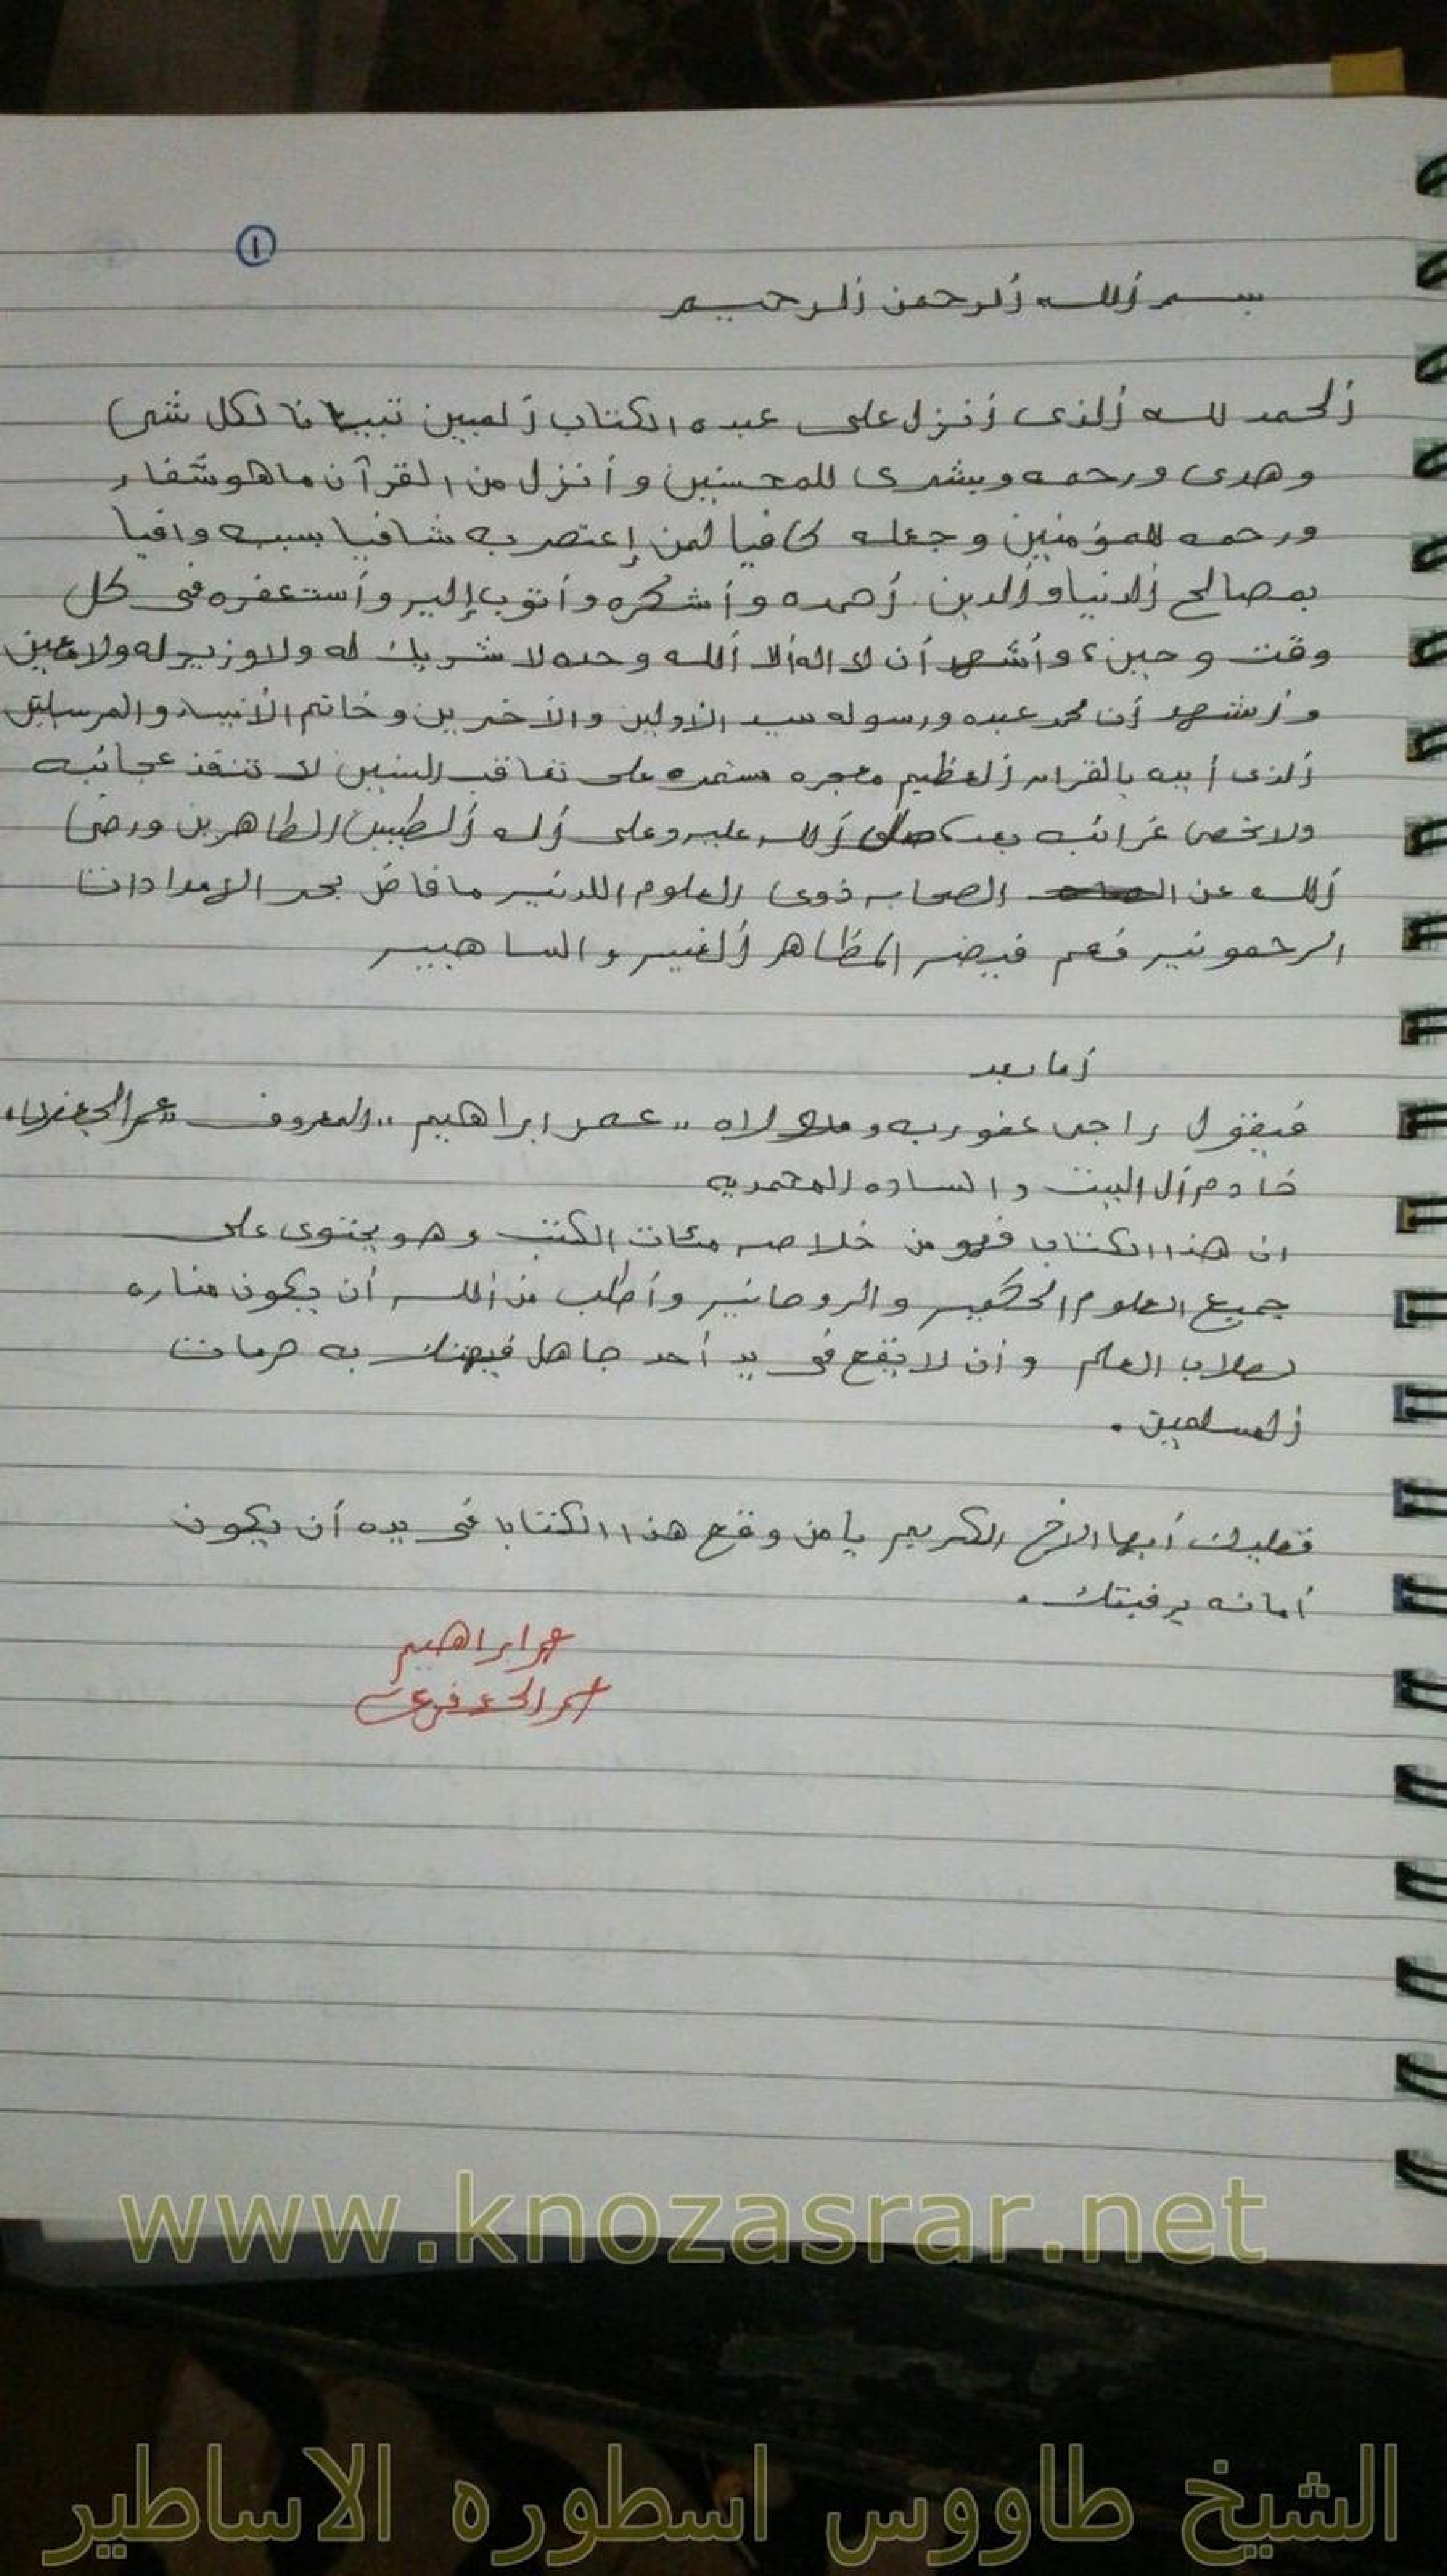 ١
بسم ألله ألرحمن ألرحيم
ألحمد لله ألذى أنزل على عبده الكتاب ألمبين تبيانا لكل شى
وهدى ورحمه وبشرى للمحسنين وأنزل من القرآن ماهو شفاء
ورحمه للمؤمنين وجعله كافيا لمن إعتصر به شافيا بسببه وافيا
بمصالح ألدنيا وألدين أحمده وأشكره وأتوب إليه وأستغفره فى كل
وقت وحين، وأشهد أن لا اله ألا ألله وحده لا شريك له ولا وزير له ولا معين
وأشهد أن محمد عبده ورسوله سيد الأولين والأخرين وخاتم الأنبياء والمرسلين
ألذى أيده بالقران ألعظيم معجزه مستمره على تعاقب السنين لا تنفذ عجائبه
ولا تحصى غرائبه بعد، صلى ألله عليه وعلى أله ألطيبين الطاهرين ورضى
ألله عن الصحابه ذوى العلوم اللدنيه ما فاض بحر الامدادات
الرحمونيه فعم فيضه المظاهر ألغيبيه
أما بعد
فيقول راجى عفو ربه ومولاه ,,عمر ابراهيم,, المعروف ,,عمر الجعفرى,,
خادم أل البيت والساده المحمديه
ان هذا الكتاب فهو من خلاصه مئات الكتب وهو يحتوى على
جميع العلوم الحكميه والروحانيه وأطلب من ألله أن يكون مناره
لطلاب العلم وأن لا يقع فى يد أحد جاهل فيهتك به حرمات
ألمسلمين.
فعليك أيها الاخ الكريم يا من وقع هذا الكتاب فى يده أن يكون
أمانه برقبتك.
عمر ابراهيم
www.knozasrar.net
الشيخ طاووس اسطوره الاساطير